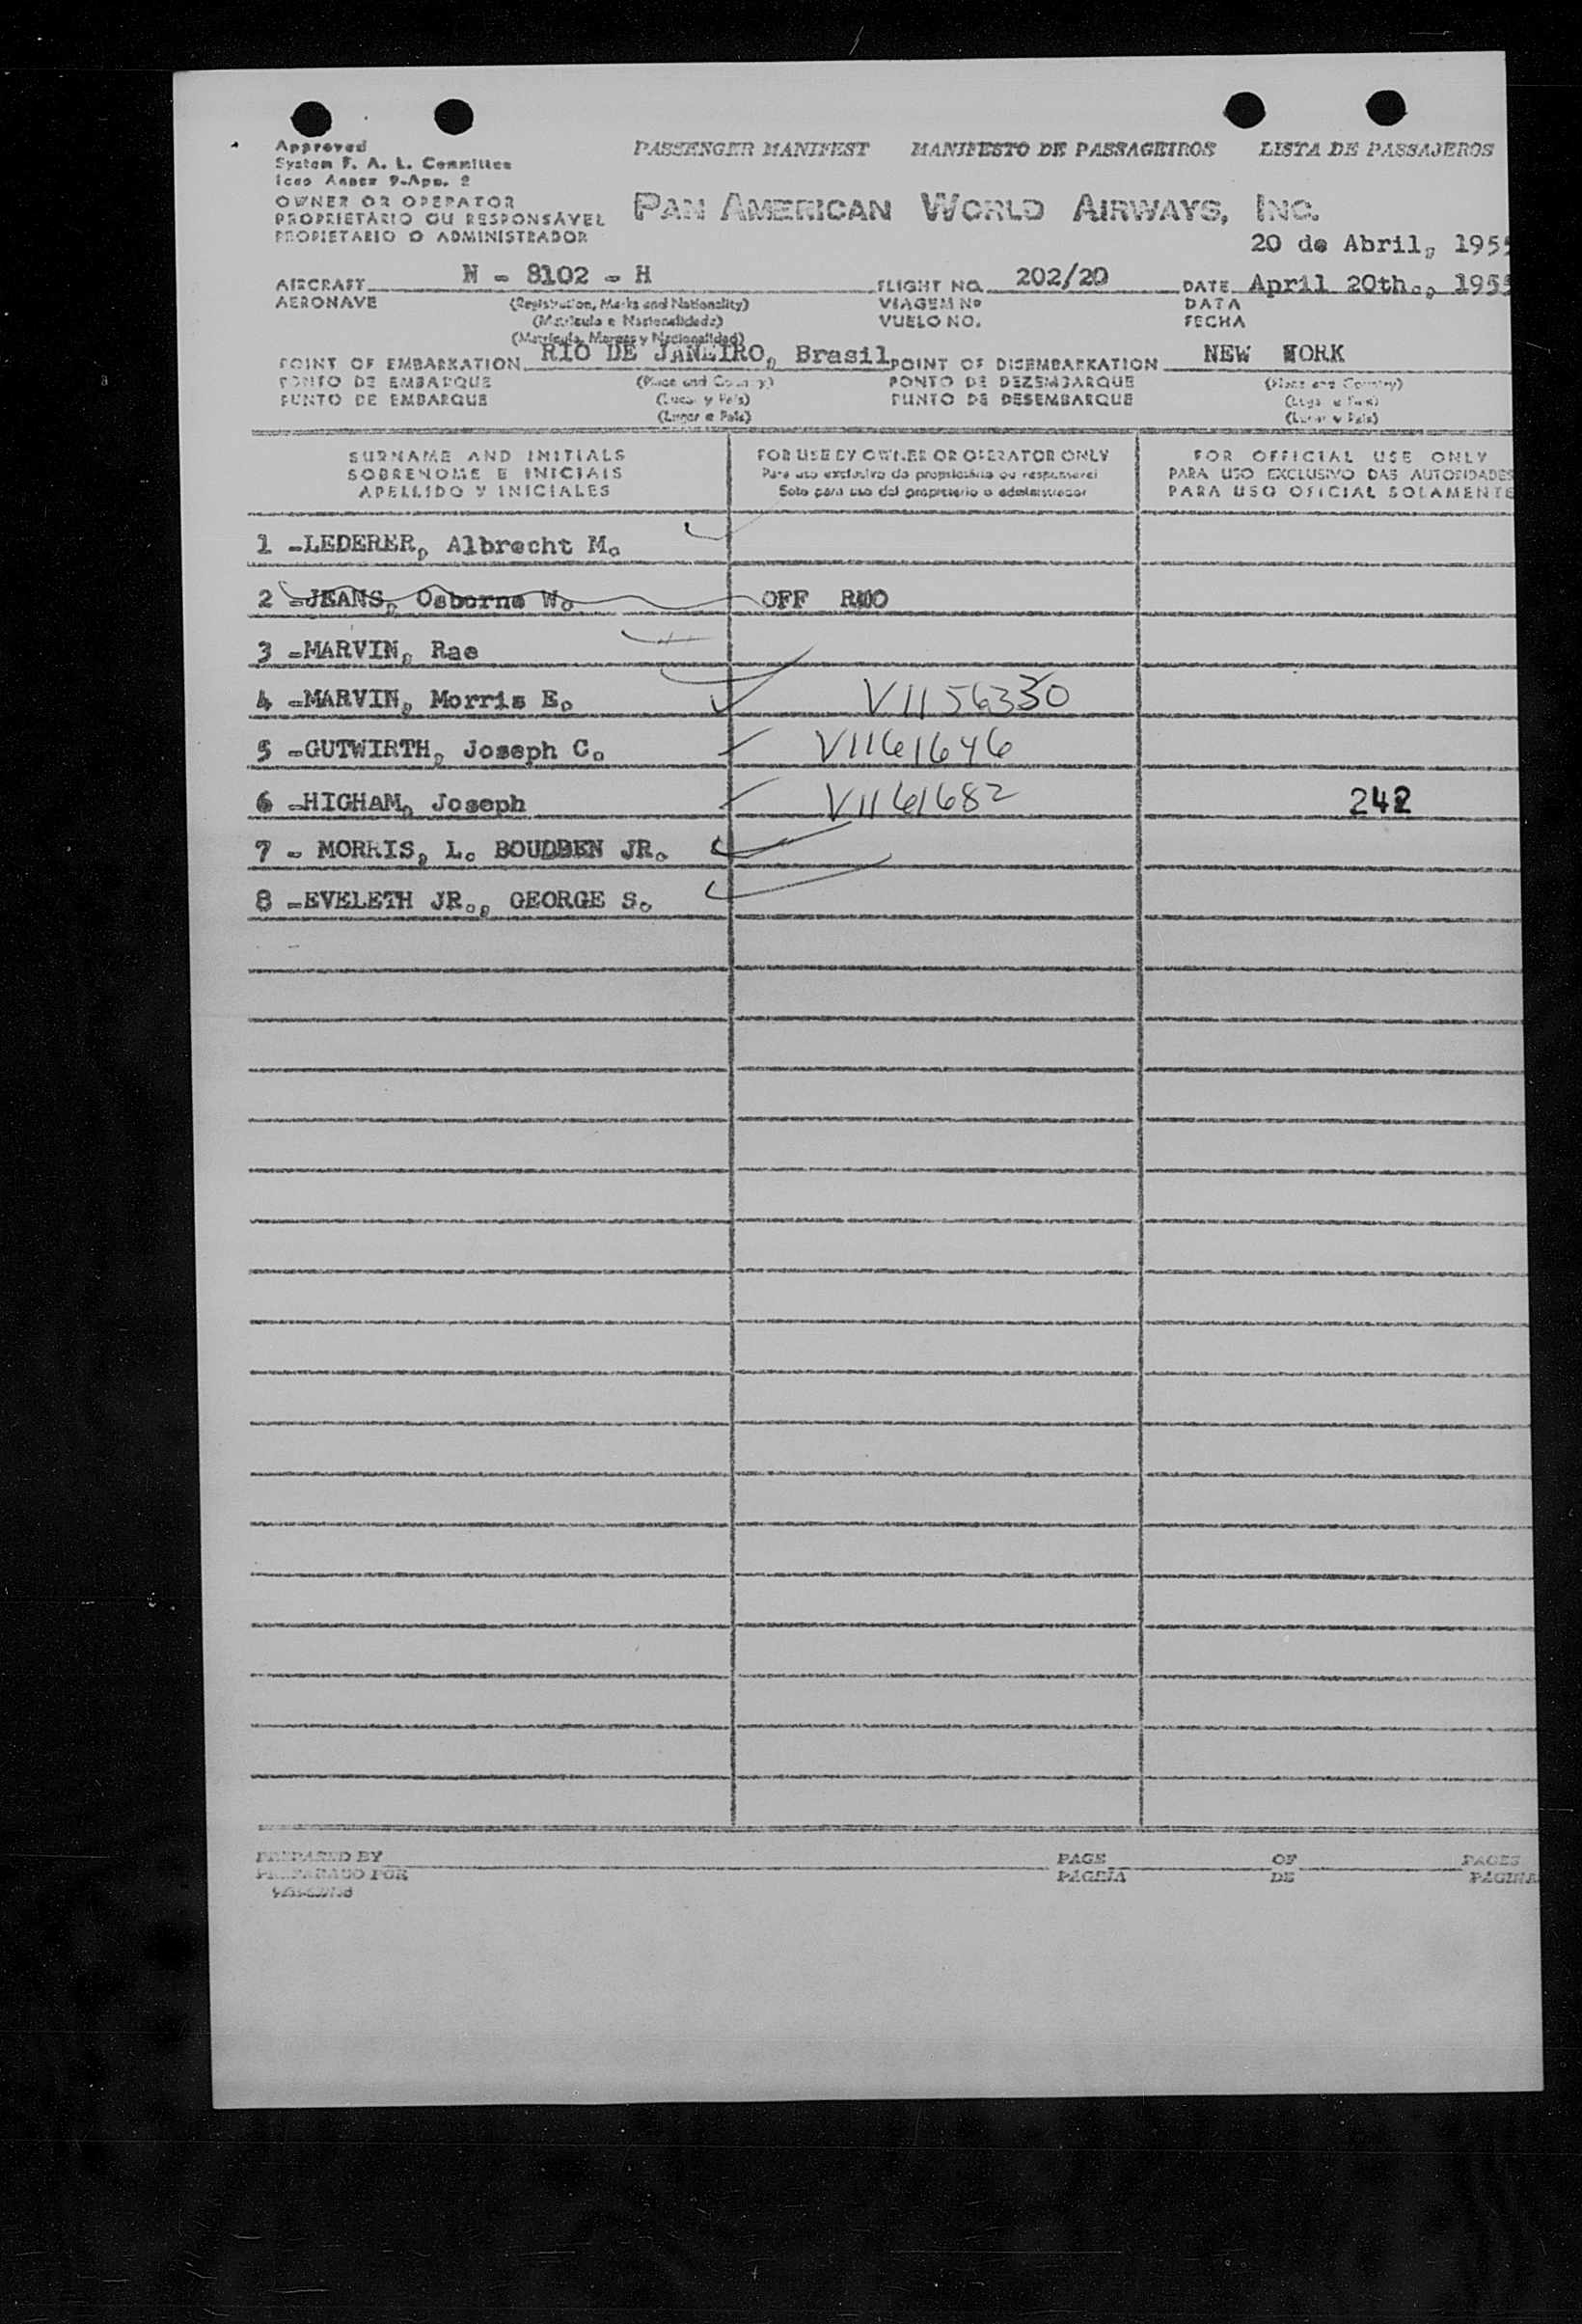 Approved
System F. A. L. Committee
Icao Annex 9-App. 2
PASSENGER MANIFEST MANIFESTO DE PASSAGEIROS LISTA DE PASSAJEROS
OWNER OR OPERATOR
PROPRIETÁRIO OU RESPONSÁVEL
PROPIETARIO O ADMINISTRADOR
PAN AMERICAN WORLD AIRWAYS, INC.
20 de Abril, 1955
AIRCRAFT N - 8102 - H FLIGHT NO. 202/20 DATE April 20th., 1955
AERONAVE (Registration, Marks and Nationality) VIAGEM Nº DATA
(Matrícula e Nacionalidade) VUELO NO. FECHA
(Matrícula, Marcas y Nacionalidad)
POINT OF EMBARKATION RIO DE JANEIRO, Brasil POINT OF DISEMBARKATION NEW YORK
PONTO DE EMBARQUE (Place and Country) PONTO DE DEZEMBARQUE (Place and Country)
PUNTO DE EMBARQUE (Lugar y País) PUNTO DE DESEMBARQUE (Lugar e País)
(Lugar e País) (Lugar y País)
SURNAME AND INITIALS FOR USE BY OWNER OR OPERATOR ONLY FOR OFFICIAL USE ONLY
SOBRENOME E INICIAIS Para uso exclusivo do proprietário ou responsavel PARA USO EXCLUSIVO DAS AUTORIDADES
APELLIDO Y INICIALES Solo para uso del propietario o administrador PARA USO OFICIAL SOLAMENTE
1 -LEDERER, Albrecht M.
2 -JEANS, Osborne W. OFF RIO
3 -MARVIN, Rae
4 -MARVIN, Morris E. V1156330
5 -GUTWIRTH, Joseph C. V1161646
6 -HIGHAM, Joseph V1161682 242
7 - MORRIS, L. BOUDBEN JR.
8 -EVELETH JR., GEORGE S.
PREPARED BY PAGE OF PAGES
PREPARADO POR PÁGINA DE PÁGINA